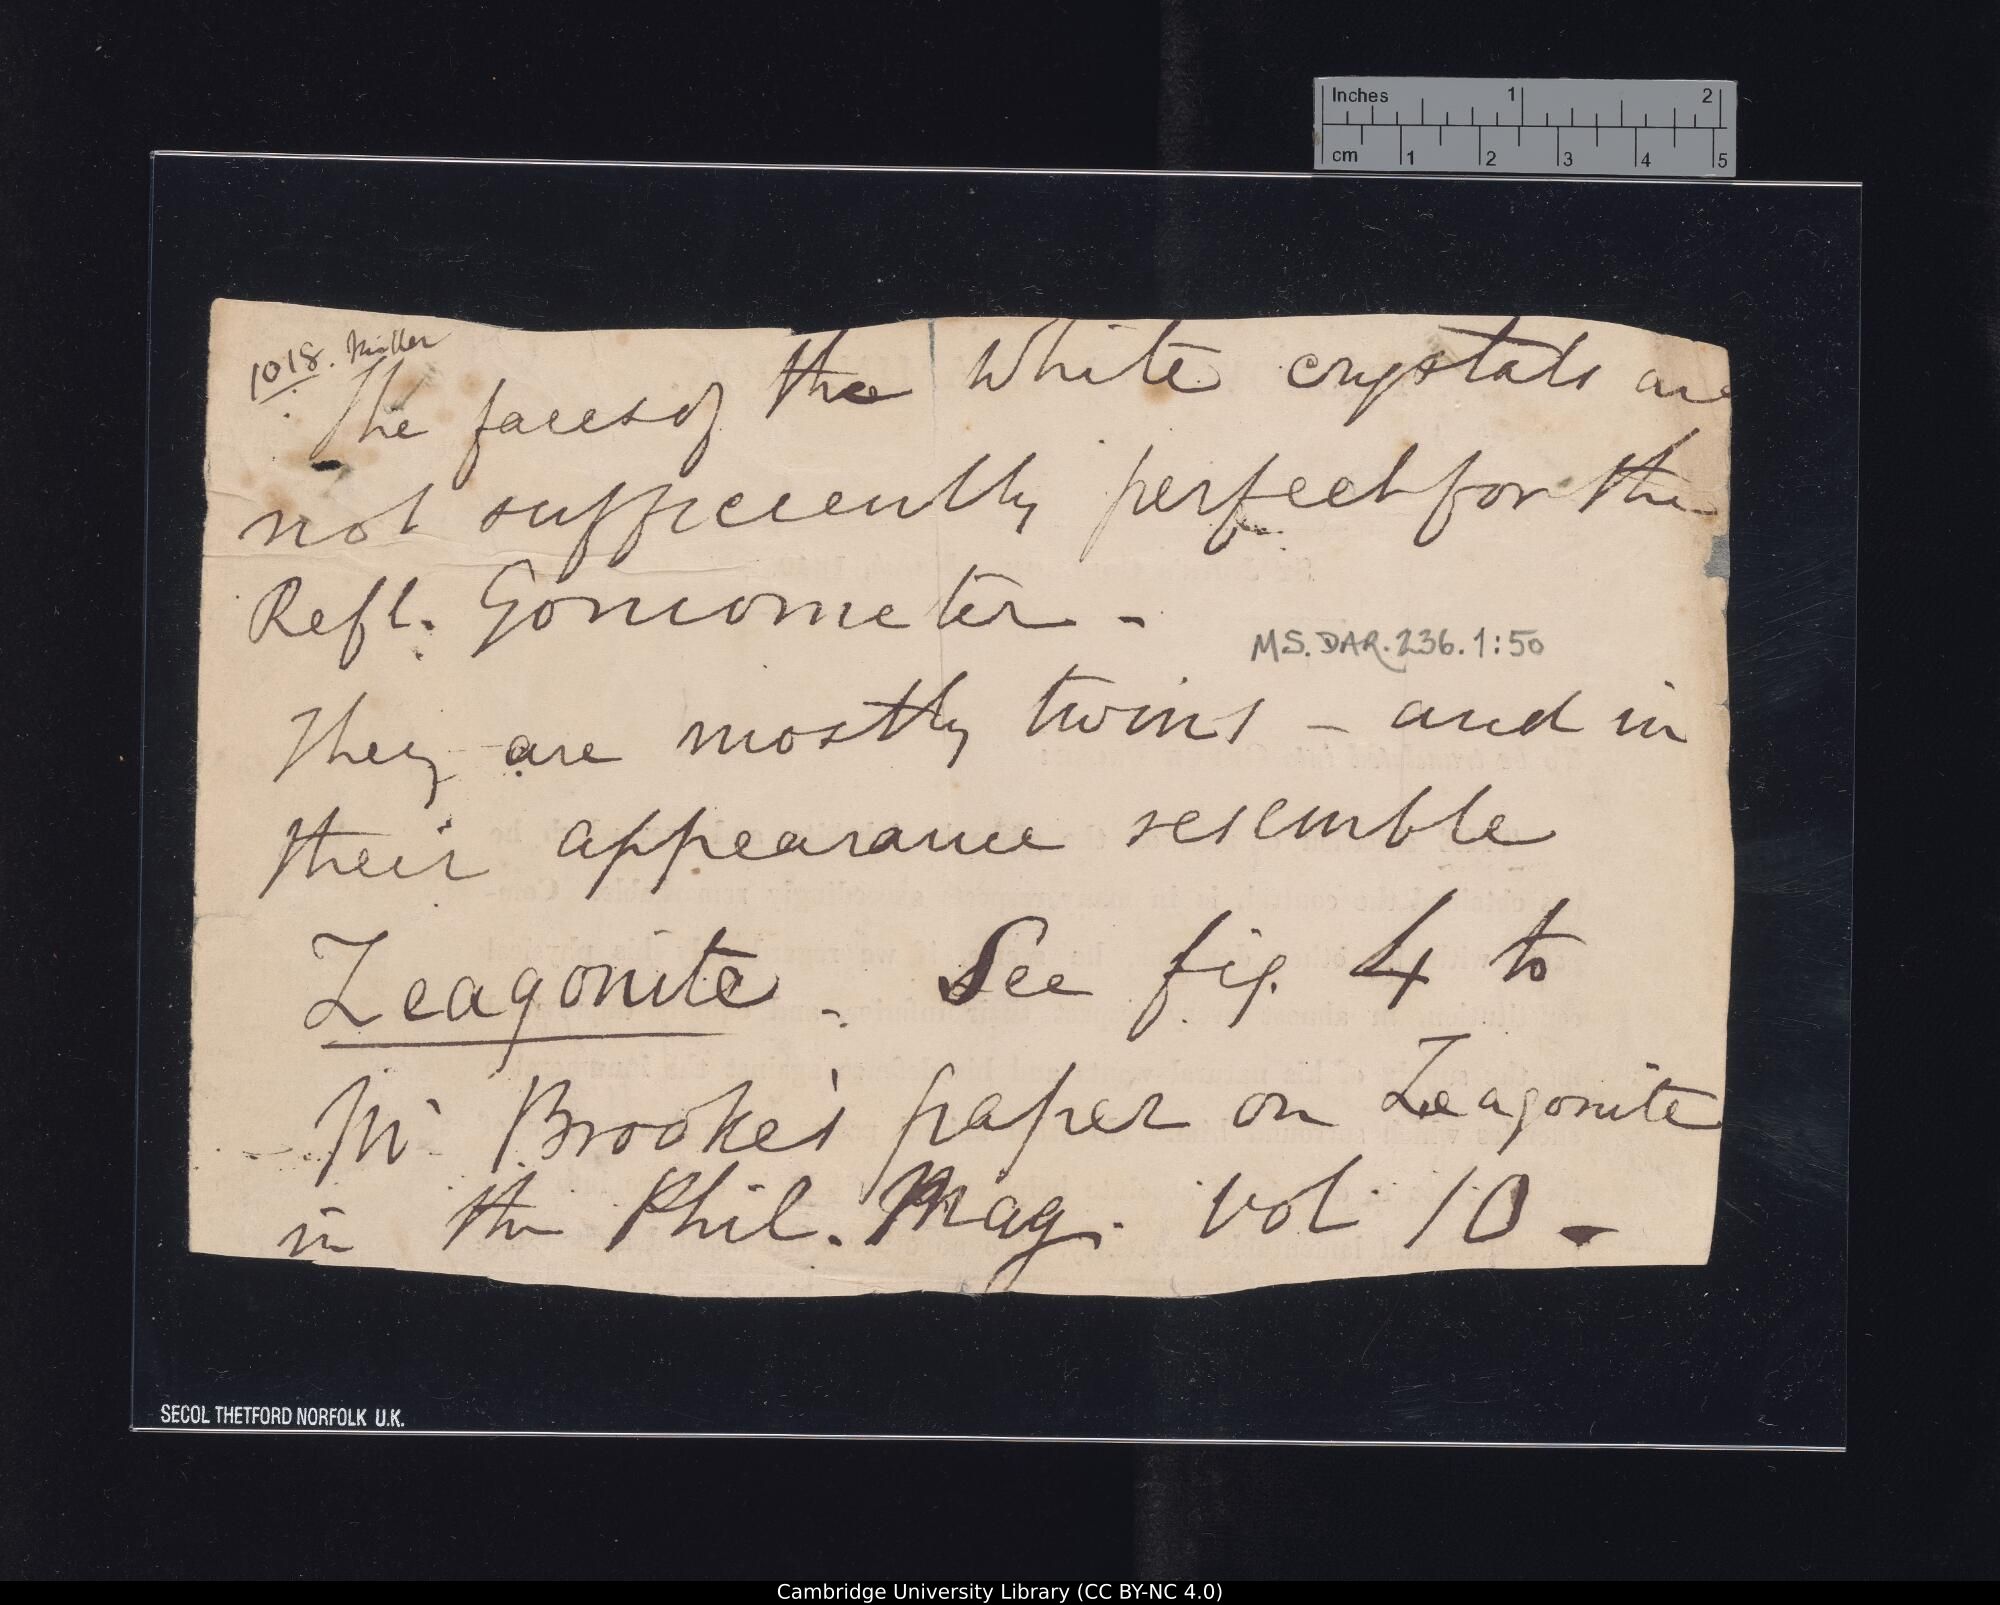 Inches 1 2
cm 1 2 3 4 5
1018. Miller
The faces of the white crystals are
not sufficiently perfect for the
Refl. Goniometer -
MS. DAR. 236. 1:50
They are mostly twins - and in
their appearance resemble
Zeagonite. See fig. 4 to
Mr Brooke's paper on Zeagonite
in the Phil. Mag. vol 10 -
SECOL THETFORD NORFOLK U.K.
Cambridge University Library (CC BY-NC 4.0)